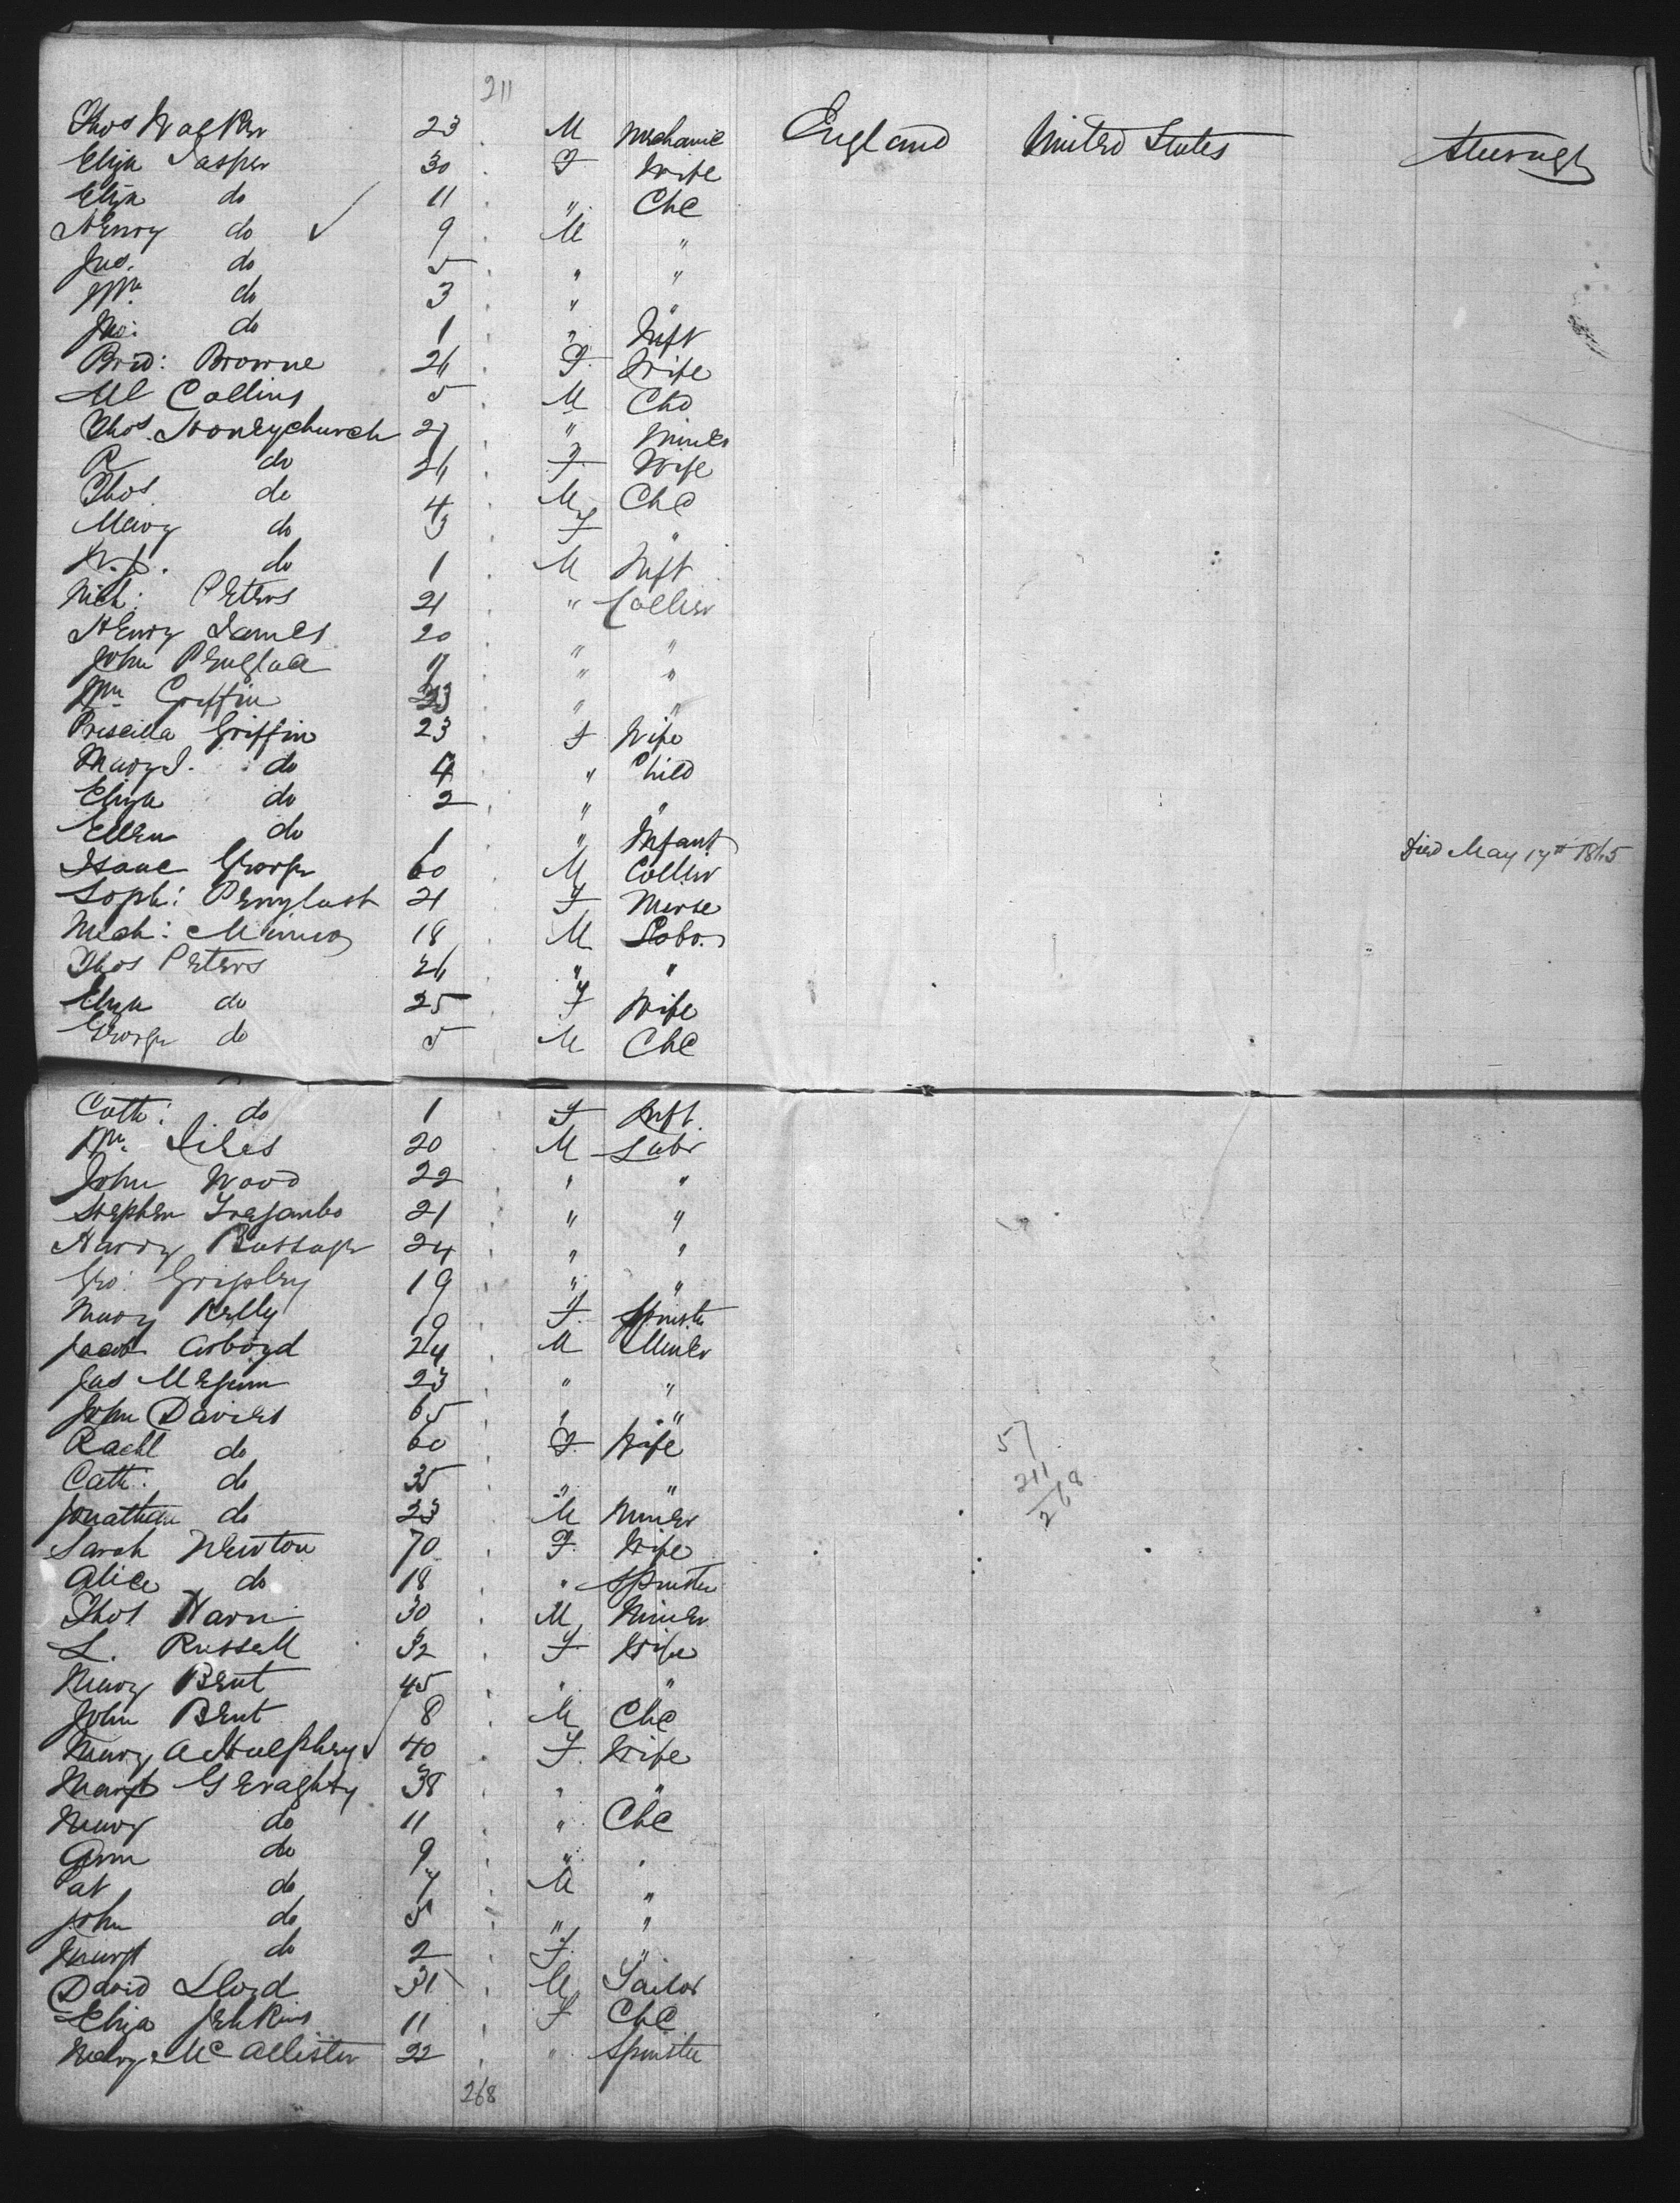 211
Thos Walker 23 M Mechanic England United States Steerage
Eliza Jasper 30 F Wife
Eliza do 11 " Chd
Henry do ✓ 9 M "
Jas. do 5 " "
Wm do 3 " "
Jno: do 1 " Inft
Brid: Browne 24 F. Wife
Ml Collins 5 M Chd
Thos. Honeychurch 27 " Miner
R do 24 F. Wife
Thos do 4 M Chd
Mary do 3 F "
W. J. do 1 M Inft
Nich: Peters 21 " Collier
Henry James 20 " "
John 17 " "
Wm Griffin 23 " "
Priscilla Griffin 23 F Wife
Mary J. do 4 " Child
Eliza do 2 " "
Ellen do 1 " Infant
Isaac George 60 M Collier Died May 17th 1865
Soph: 21 F Nurse
Mich: 18 M Labor
Thos Peters 24 " "
Eliza do 25 F Wife
George do 5 M Chd
Cath: do 1 F Inft.
Wm. 20 M Labr
John Wood 22 " "
Stephen 21 " "
Harry 24 " "
Geo: 19 " "
Mary Kelly 19 F. Spinster
Jacob 24 M Miner
Jas 23 " "
John Davies 65 " "
Rachl do 60 F Wife 57
Cath: do 35 " " 211
Jonathan do 23 M Miner 268
Sarah Newton 70 F. Wife
Alice do 18 " Spinster
Thos 30 M Miner
L. Russell 32 F Wife
Mary Bent 45 " "
John Bent 8 M Chd
Mary A ✓ 40 F. Wife
Margt Geraghty 38 " "
Mary do 11 " Chd
Ann do 9 " "
Pat do 7 M "
John do 5 " "
Margt do 2 F. "
David Lloyd 31 M Tailor
Eliza Jenkins 11 F Chd
Mary McAllister 22 " Spinster
268